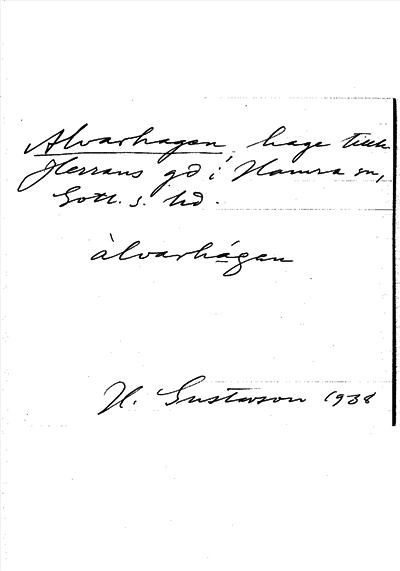 Alvarhagen, hage till
Herrans gd i Hamra sn,
Gotl. s. hd.
àlvarhá̱gen
H. Gustavson 1938